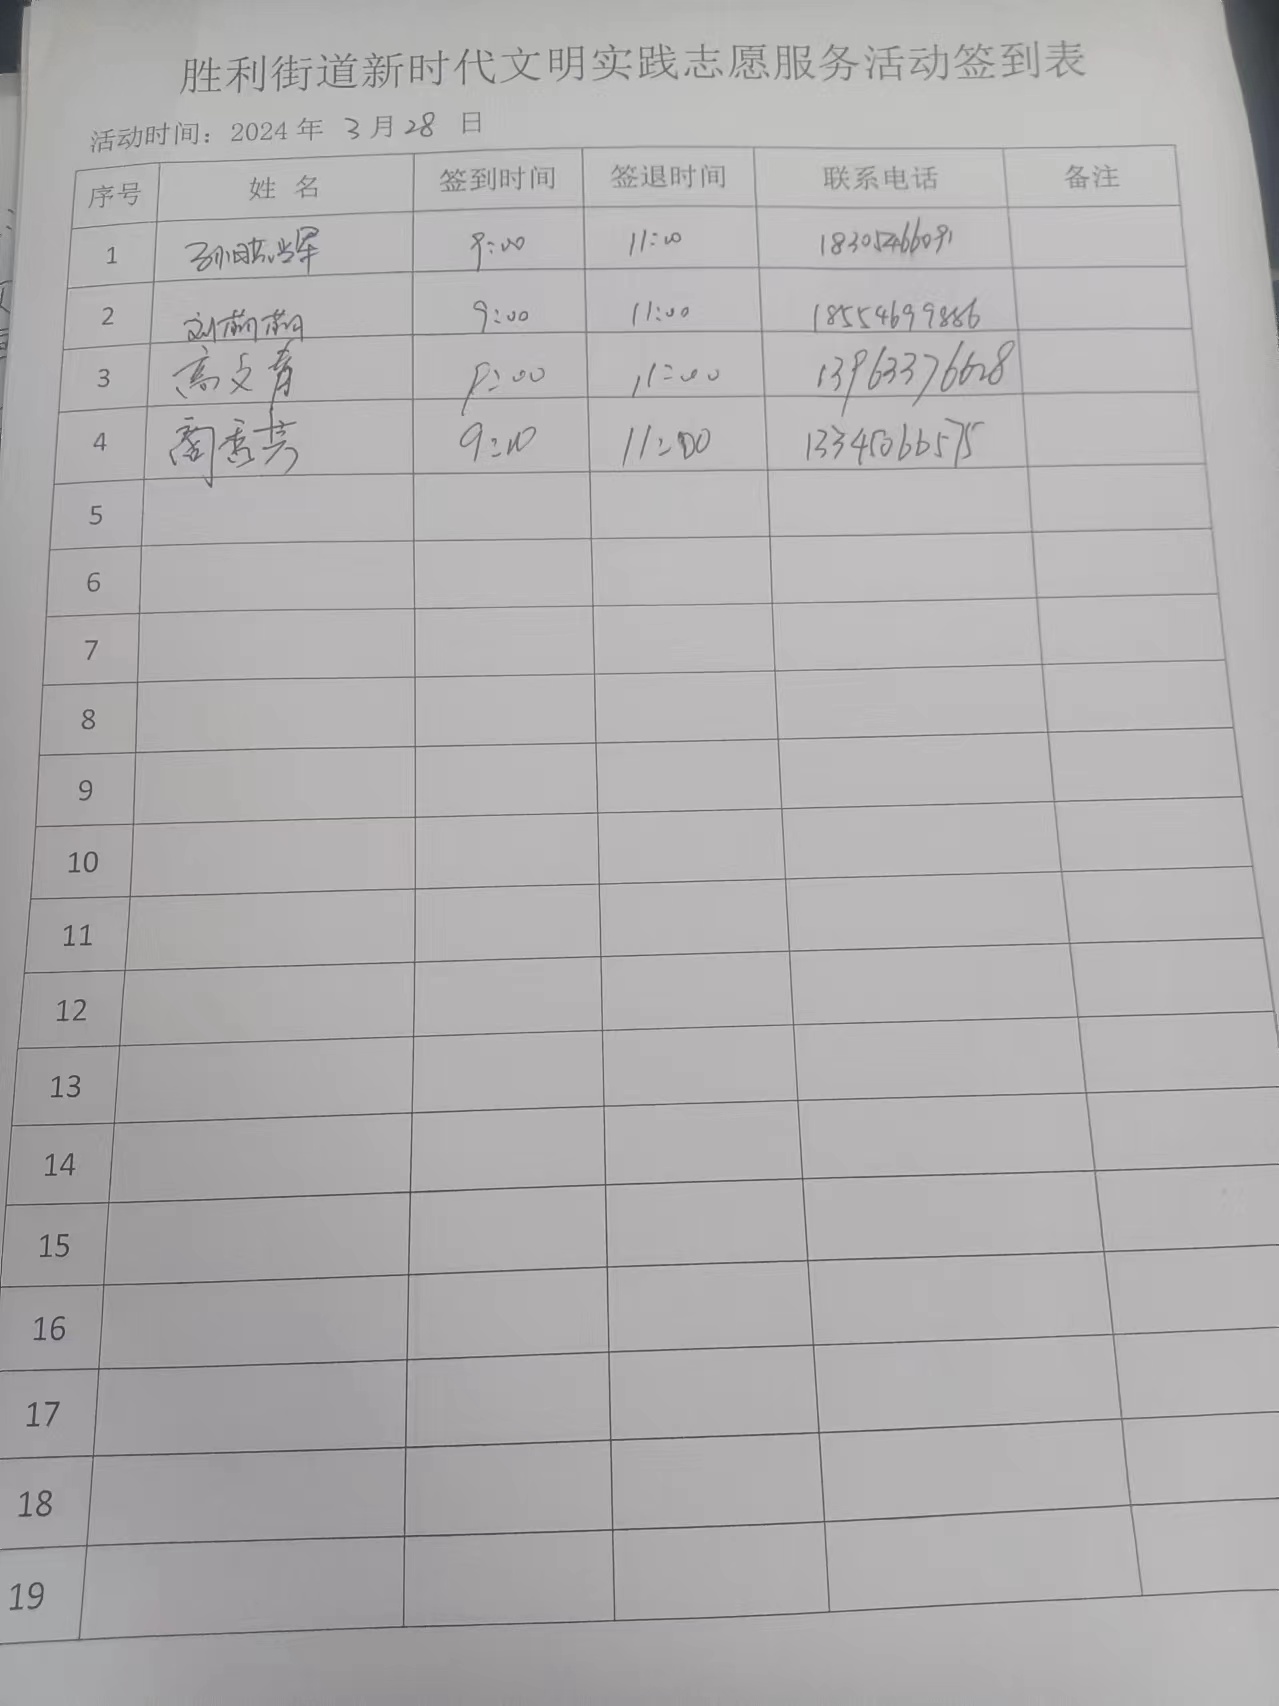 胜利街道新时代文明实践志愿服务活动签到表
活动时间：2024 年 3 月 28 日
序号 姓 名 签到时间 签退时间 联系电话 备注
1 孙晓辉 9:00 11:00 18305466091
2 刘莉莉 9:00 11:00 18554699886
3 高文青 9:00 11:00 13963376628
4 9:00 11:00 13345066575
5
6
7
8
9
10
11
12
13
14
15
16
17
18
19